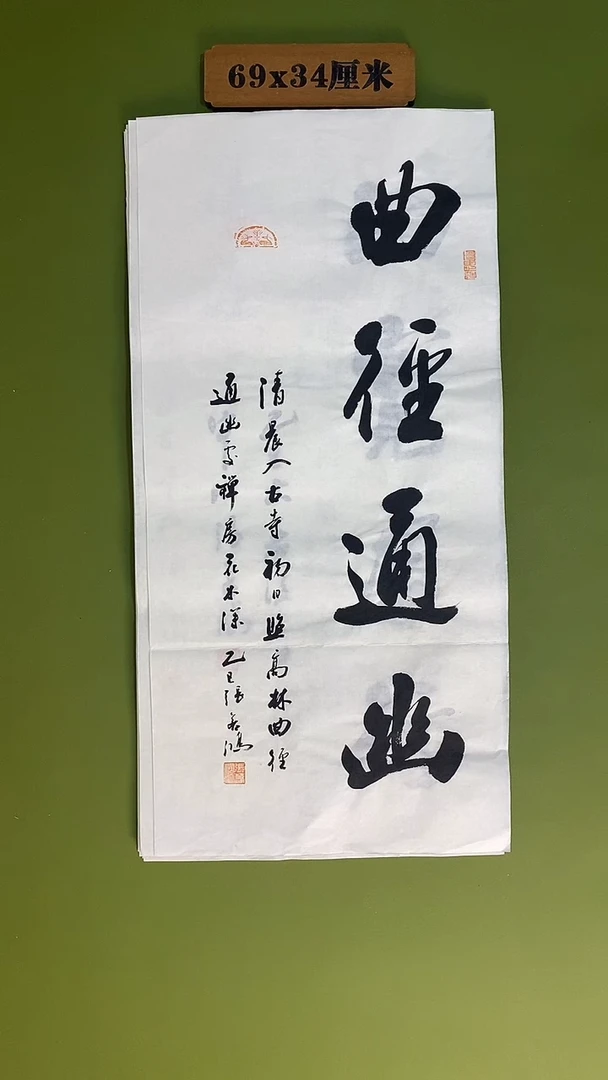 69x34厘米
曲徑通幽
清晨入古寺初日照高林曲徑
通幽處禪房花木深乙巳張